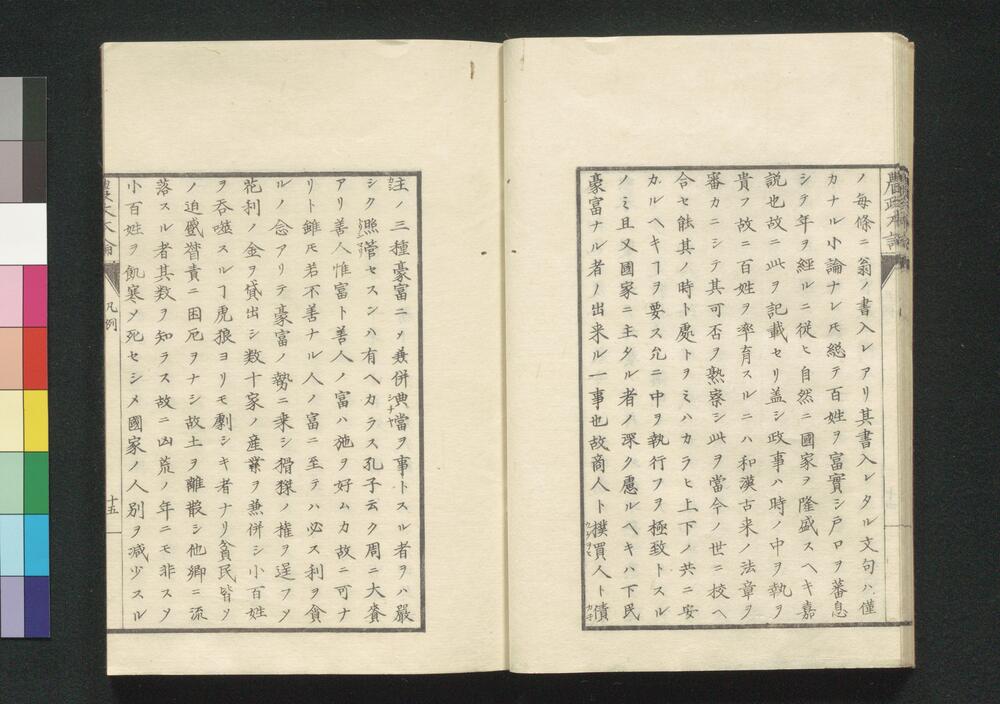 ノ每條ニ翁ノ書入レアリ其書入レタル文句ハ僅
カナル小論ナレモ総テ百姓ヲ富實シ戸口ヲ蕃息
シテ年ヲ經ルニ従ヒ自然ニ國家ヲ隆盛スヘキ嘉
説也故ニ此ヲ記載セリ盖シ政事ハ時ノ中ヲ執ヲ
貴フ故ニ百姓ヲ率育スルニハ和漢古来ノ法章ヲ
審カニシテ其可否ヲ熟察シ此ヲ當今ノ世ニ校ヘ
合セ能其ノ時ト處トヲミハカラヒ上下ノ共ニ安
カルヘキヿヲ要ス允ニ中ヲ執行フヲ極致トスル
ノミ且又國家ニ主タル者ノ深ク慮ルヘキハ下民
豪富ナル者ノ出来ル一事也故商人ト撲買人ト債
農政本論
主ノ三種豪富ニメ兼併典當ヲ事トスル者ヲハ嚴
シク照管セスンハ有ヘカラス孔子云ク周ニ大賚
アリ善人惟富ト善人ノ富ハ施ヲ好ムカ故ニ可ナ
リト雖モ若不善ナル人ノ富ニ至テハ必ス利ヲ貪
ルノ念アリテ豪富ノ勢ニ乗シ猾獪ノ権ヲ逞フメ
花利ノ金ヲ貸出シ数十家ノ産業ヲ兼併シ小百姓
ヲ呑噬スルヿ虎狼ヨリモ劇シキ者ナリ貧民皆ソ
ノ迫蹙督責ニ困厄ヲナシ故土ヲ離散シ他郷ニ流
落スル者其数ヲ知ラス故ニ凶荒ノ年ニモ非スメ
小百姓ヲ飢寒メ死セシメ國家ノ人別ヲ減少スル
凡例
十五